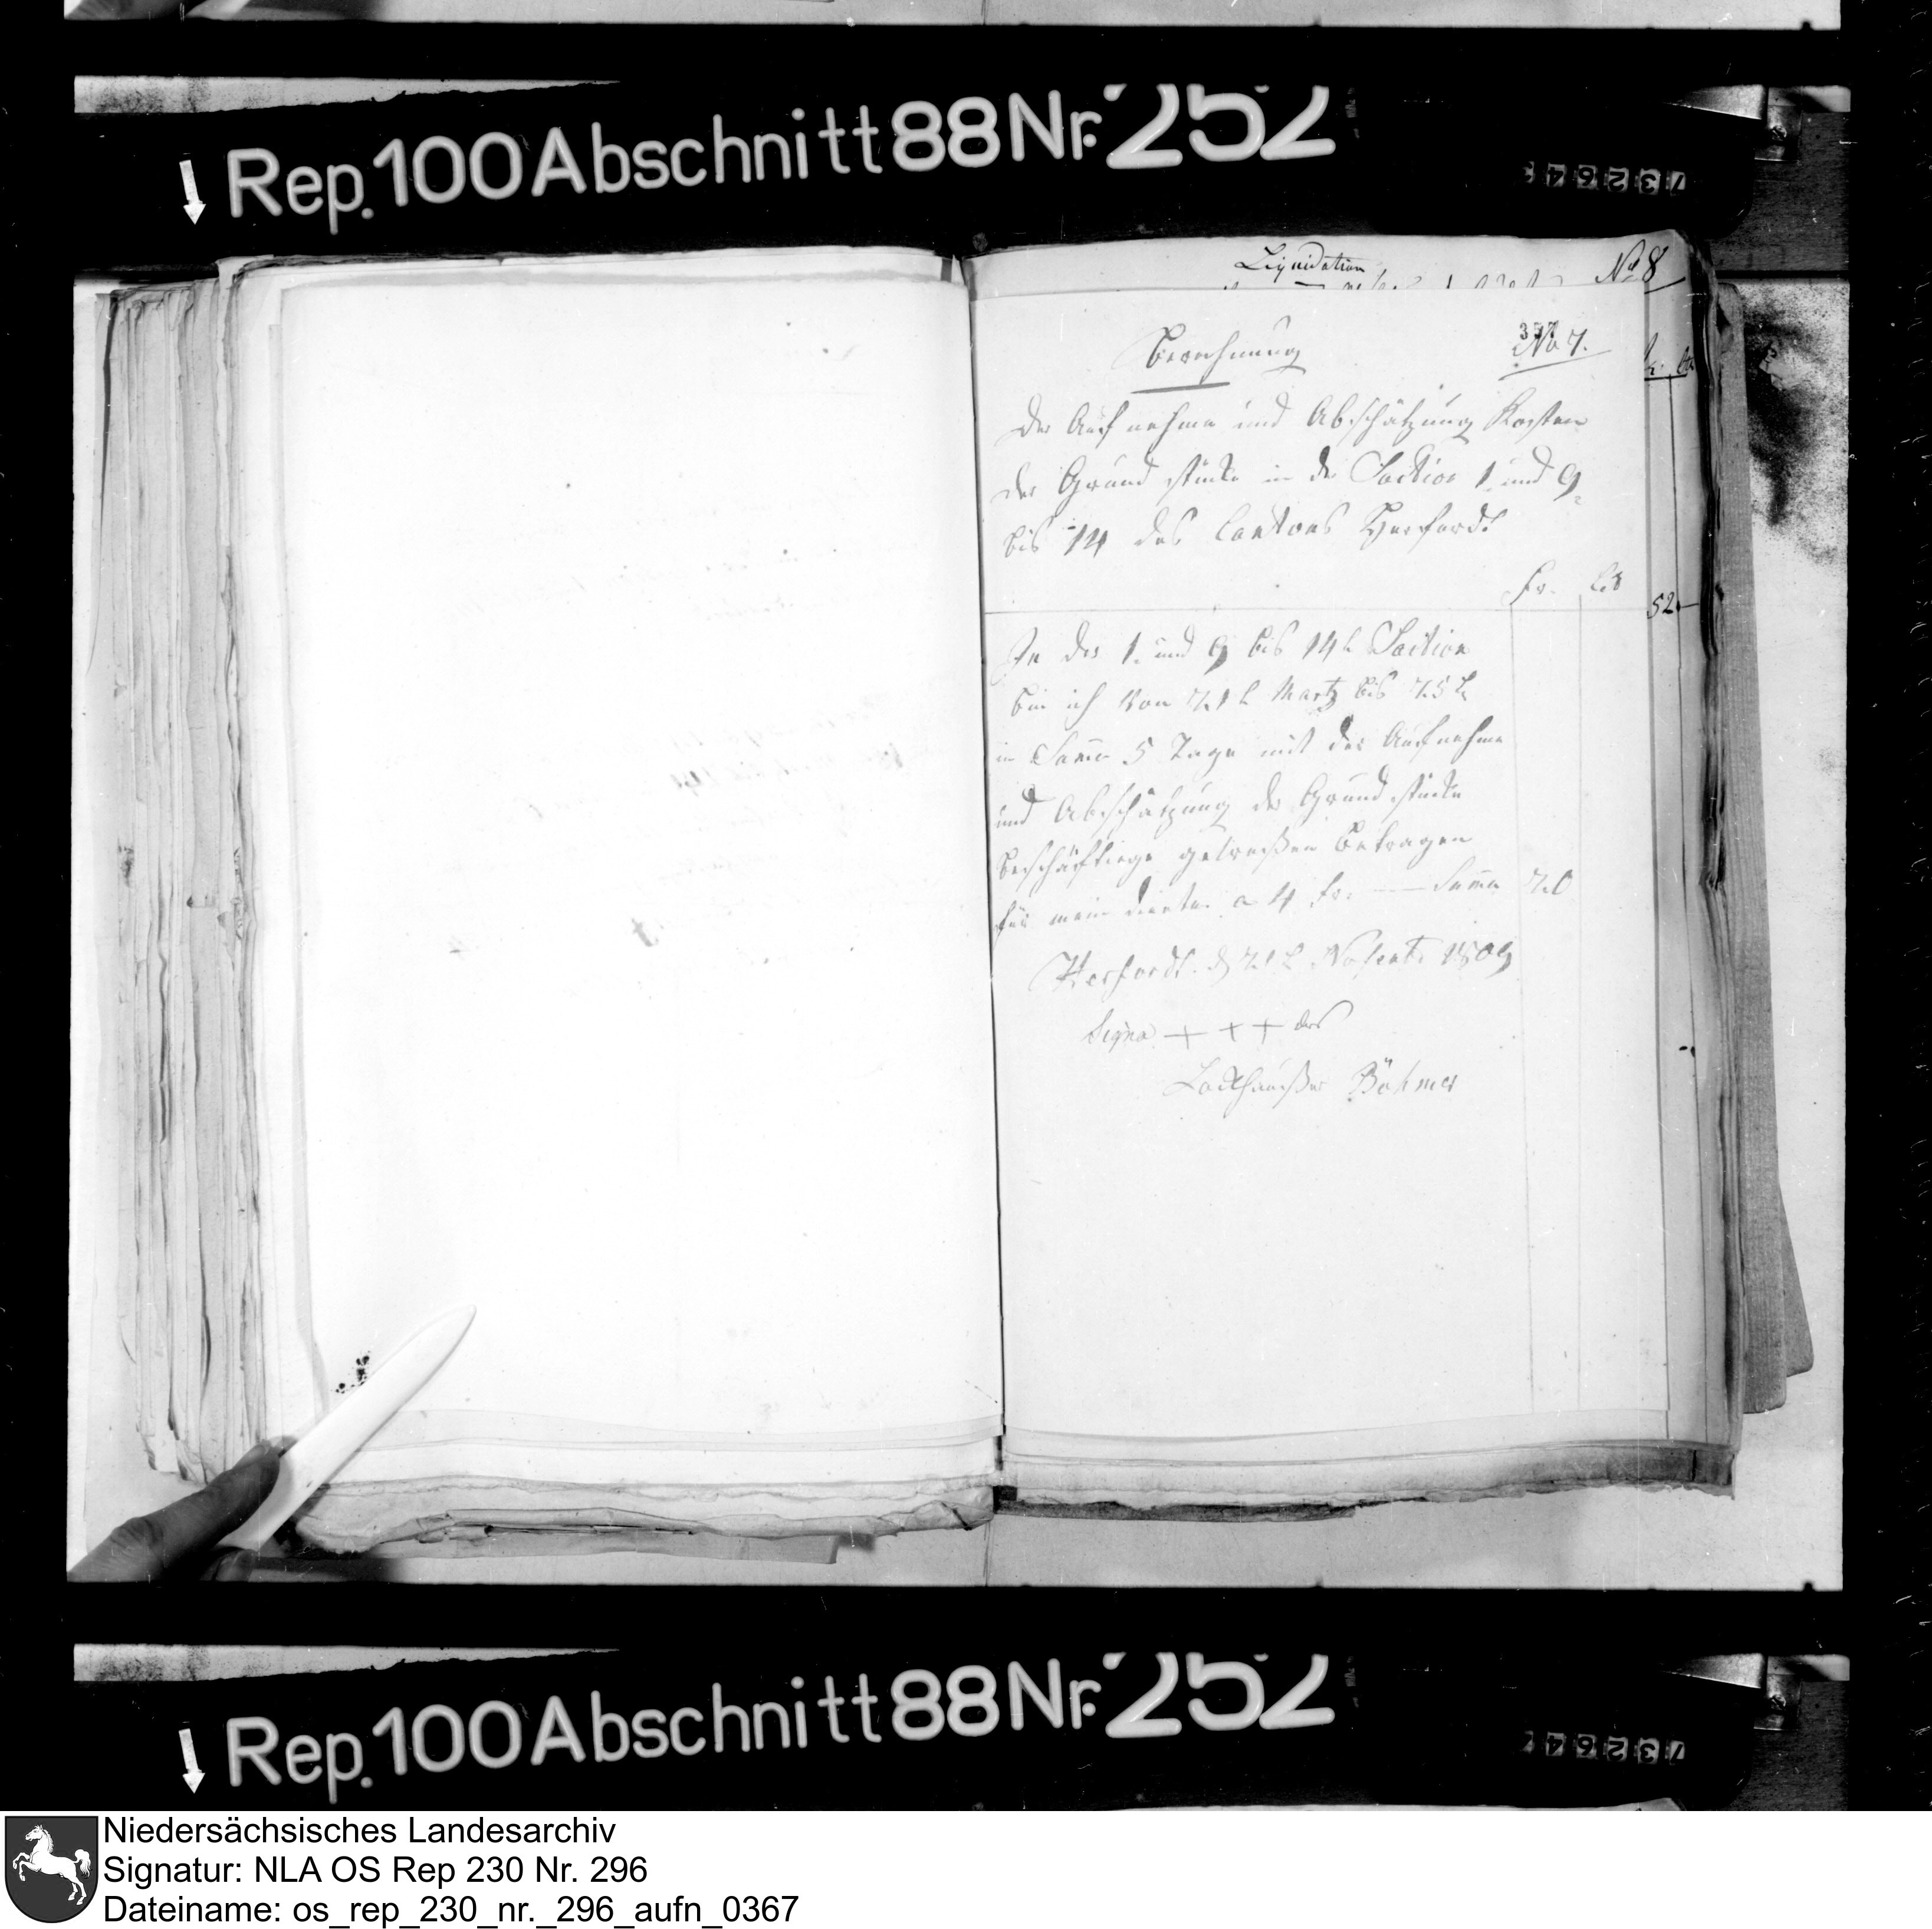 Rep. 100 Abschnitt 88 Nr. 252
Liquidation
No 8
357
No 7.
Berechnung
Der Aufnehme und Abschätzung Kosten
der Grund stücke in de Section 1. und 9
bis 14 des Cantons Herfordt
Fr. Cs
52 —
In der 1. und 9 bis 14t Section
bin ich von 21t Martz bis 25t
in Sama 5 Tage mit der Aufnehme
und Abschätzung de Grund stücke
beschäftiege gewesen betragen
für mein a 4 Fr. — Sama 20
Herfordt. d 21t 1809
Signa + + + des
Böhmer
Rep. 100 Abschnitt 88 Nr. 252
Niedersächsisches Landesarchiv
Signatur: NLA OS Rep 230 Nr. 296
Dateiname: os_rep_230_nr._296_aufn_0367